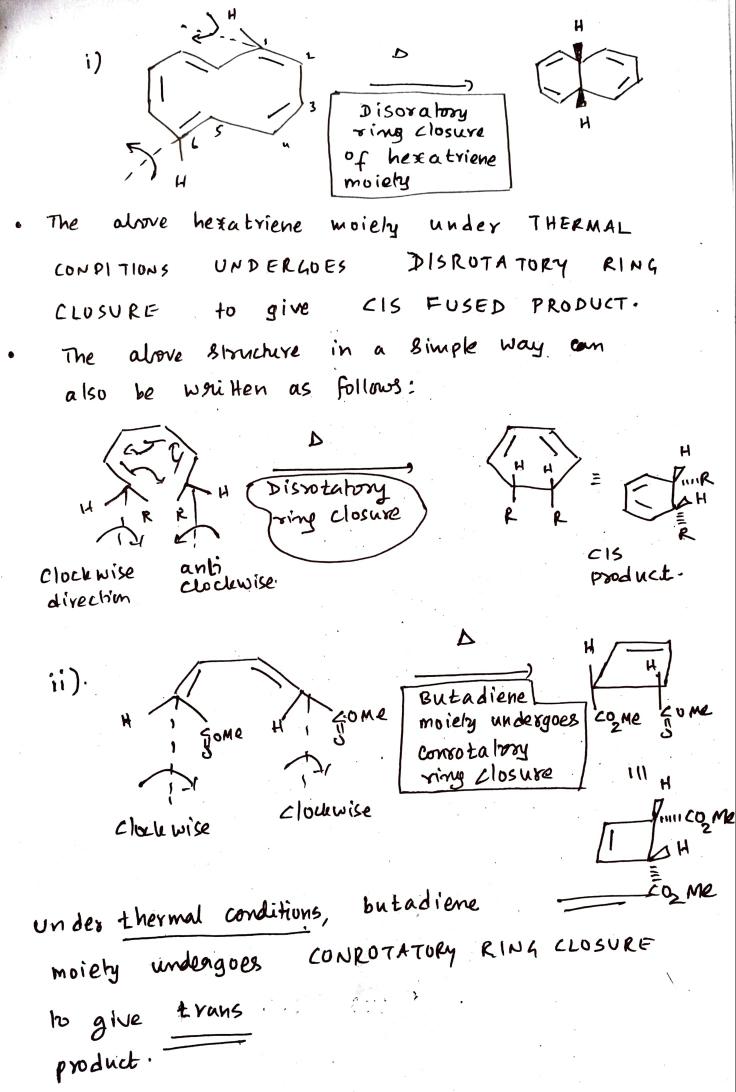 i)
H
1
2
3
4
5
6
H
Δ
Disoratory
ring closure
of hexatriene
moiety
H
H
• The above hexatriene moiety under THERMAL
CONDITIONS UNDERGOES DISROTATORY RING
CLOSURE to give CIS FUSED PRODUCT.
• The above structure in a simple way can
also be written as follows:
H
R
R
H
Δ
Disrotatory
ring closure
H
H
R
R
≡
H
R
H
R
Clockwise
direction
anti
clockwise.
CIS
product.
ii).
H
COMe
O
H
COMe
O
Clockwise
Clockwise
Δ
Butadiene
moiety undergoes
conrotatory
ring closure
H
H
CO2Me
COMe
O
III
H
CO2Me
H
CO2Me
Under thermal conditions, butadiene
moiety undergoes CONROTATORY RING CLOSURE
to give trans
product.